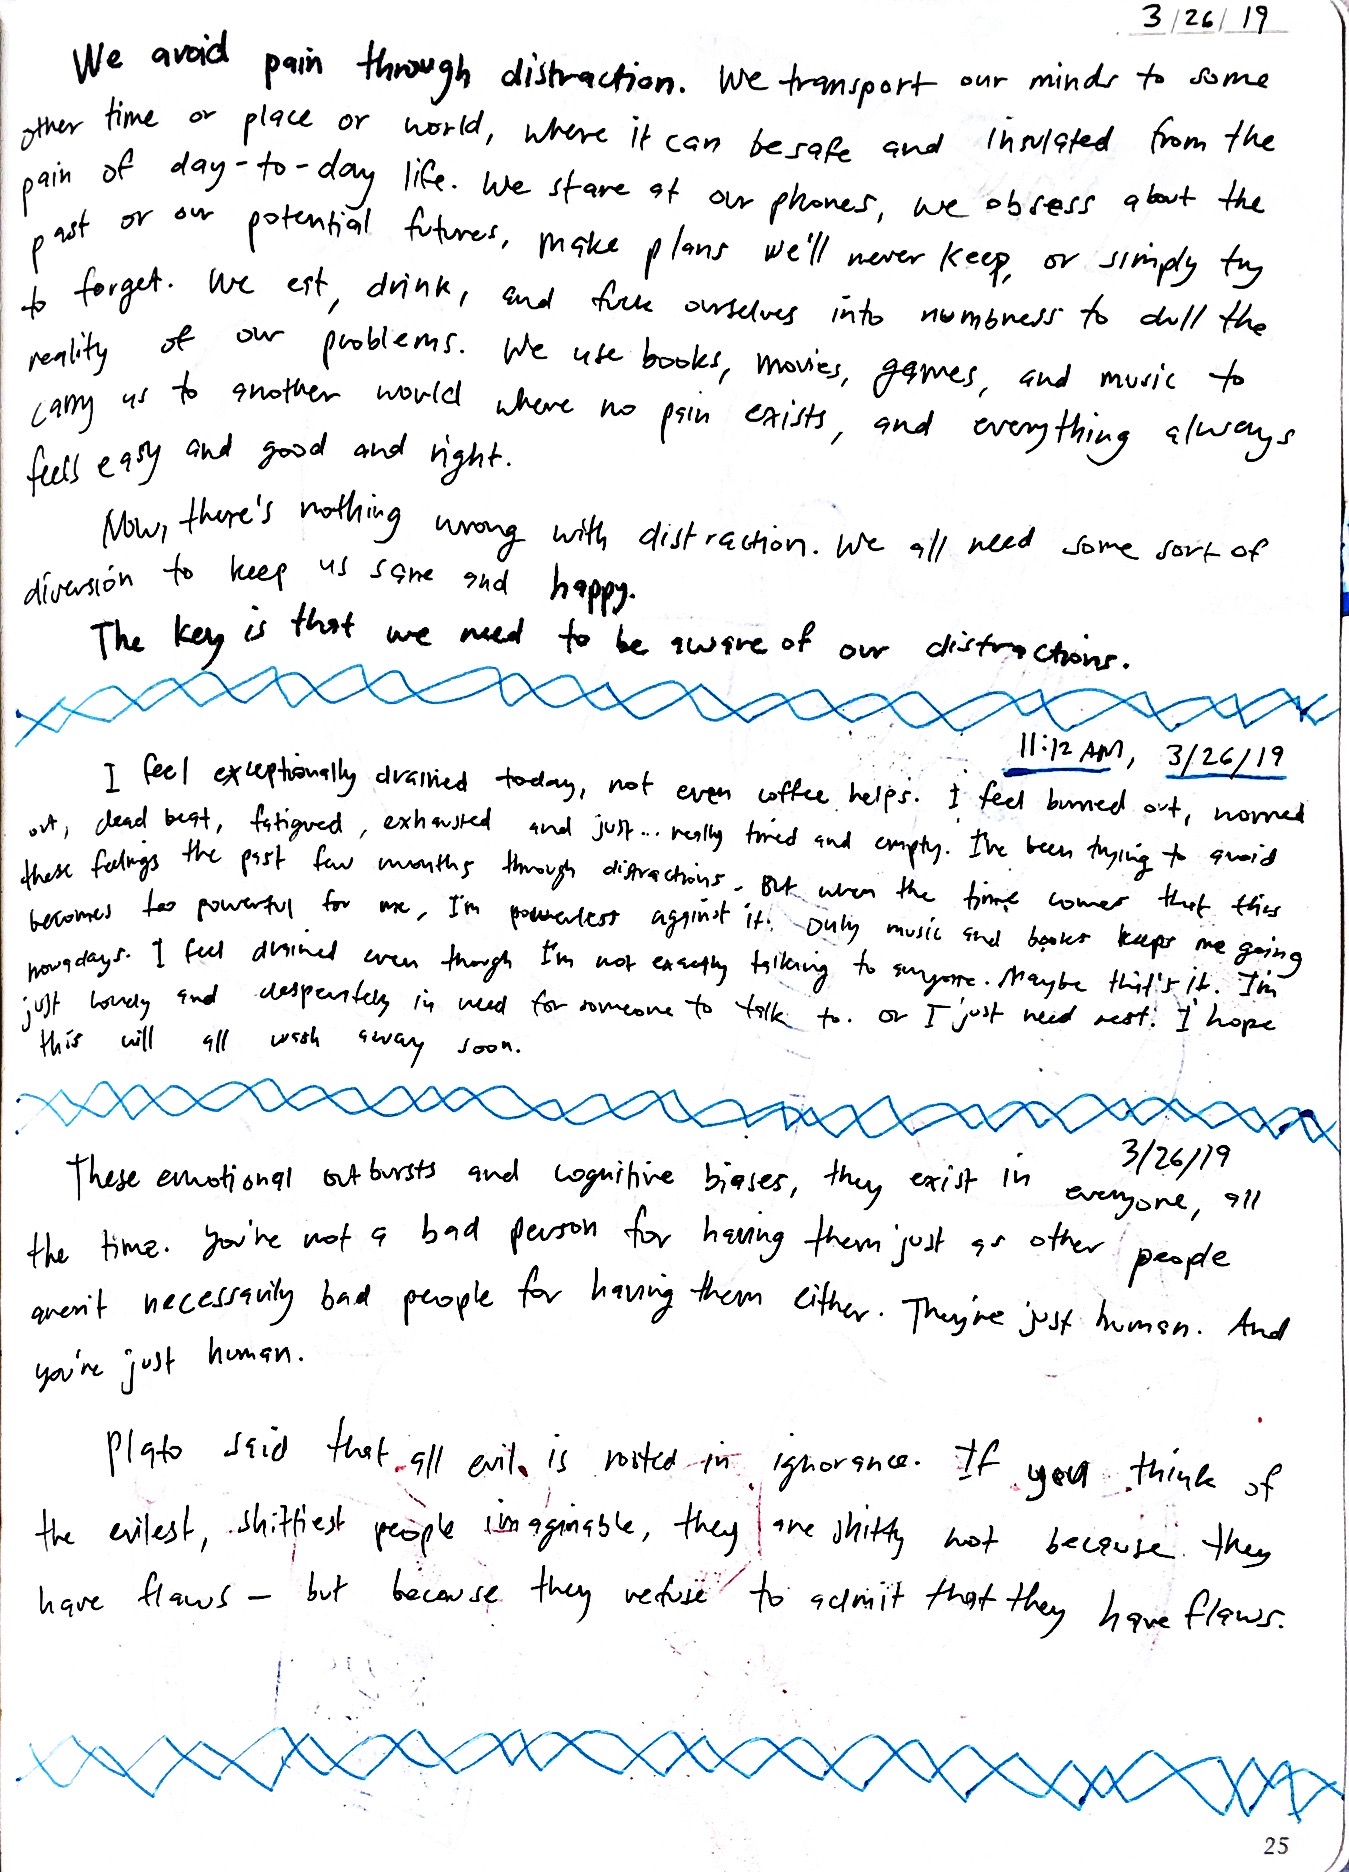 3/26/19
We avoid pain through distraction. We transport our minds to some
other time or place or world, where it can be safe and insulated from the
pain of day-to-day life. We stare at our phones, we obsess about the
past or our potential futures, make plans we'll never keep, or simply try
to forget. We eat, drink, and fuck ourselves into numbness to dull the
reality of our problems. We use books, movies, games, and music to
carry us to another world where no pain exists, and everything always
feels easy and good and right.
Now, there's nothing wrong with distraction. We all need some sort of
diversion to keep us sane and happy.
The key is that we need to be aware of our distractions.
11:12 AM, 3/26/19
I feel exceptionally drained today, not even coffee helps. I feel burned out, worned
out, dead beat, fatigued, exhausted and just... really tired and empty. I've been trying to avoid
these feelings the past few months through distractions. But when the time comes that this
becomes too powerful for me, I'm powerless against it. Only music and books keeps me going
nowadays. I feel drained even though I'm not exactly talking to anyone. Maybe that's it. I'm
just lonely and desperately in need for someone to talk to. or I just need rest. I hope
this will all wash away soon.
3/26/19
These emotional outbursts and cognitive biases, they exist in everyone, all
the time. You're not a bad person for having them just as other people
aren't necessarily bad people for having them either. They're just human. And
you're just human.
Plato said that all evil is rooted in ignorance. If you think of
the evilest, shittiest people imaginable, they are shitty not because they
have flaws – but because they refuse to admit that they have flaws.
25